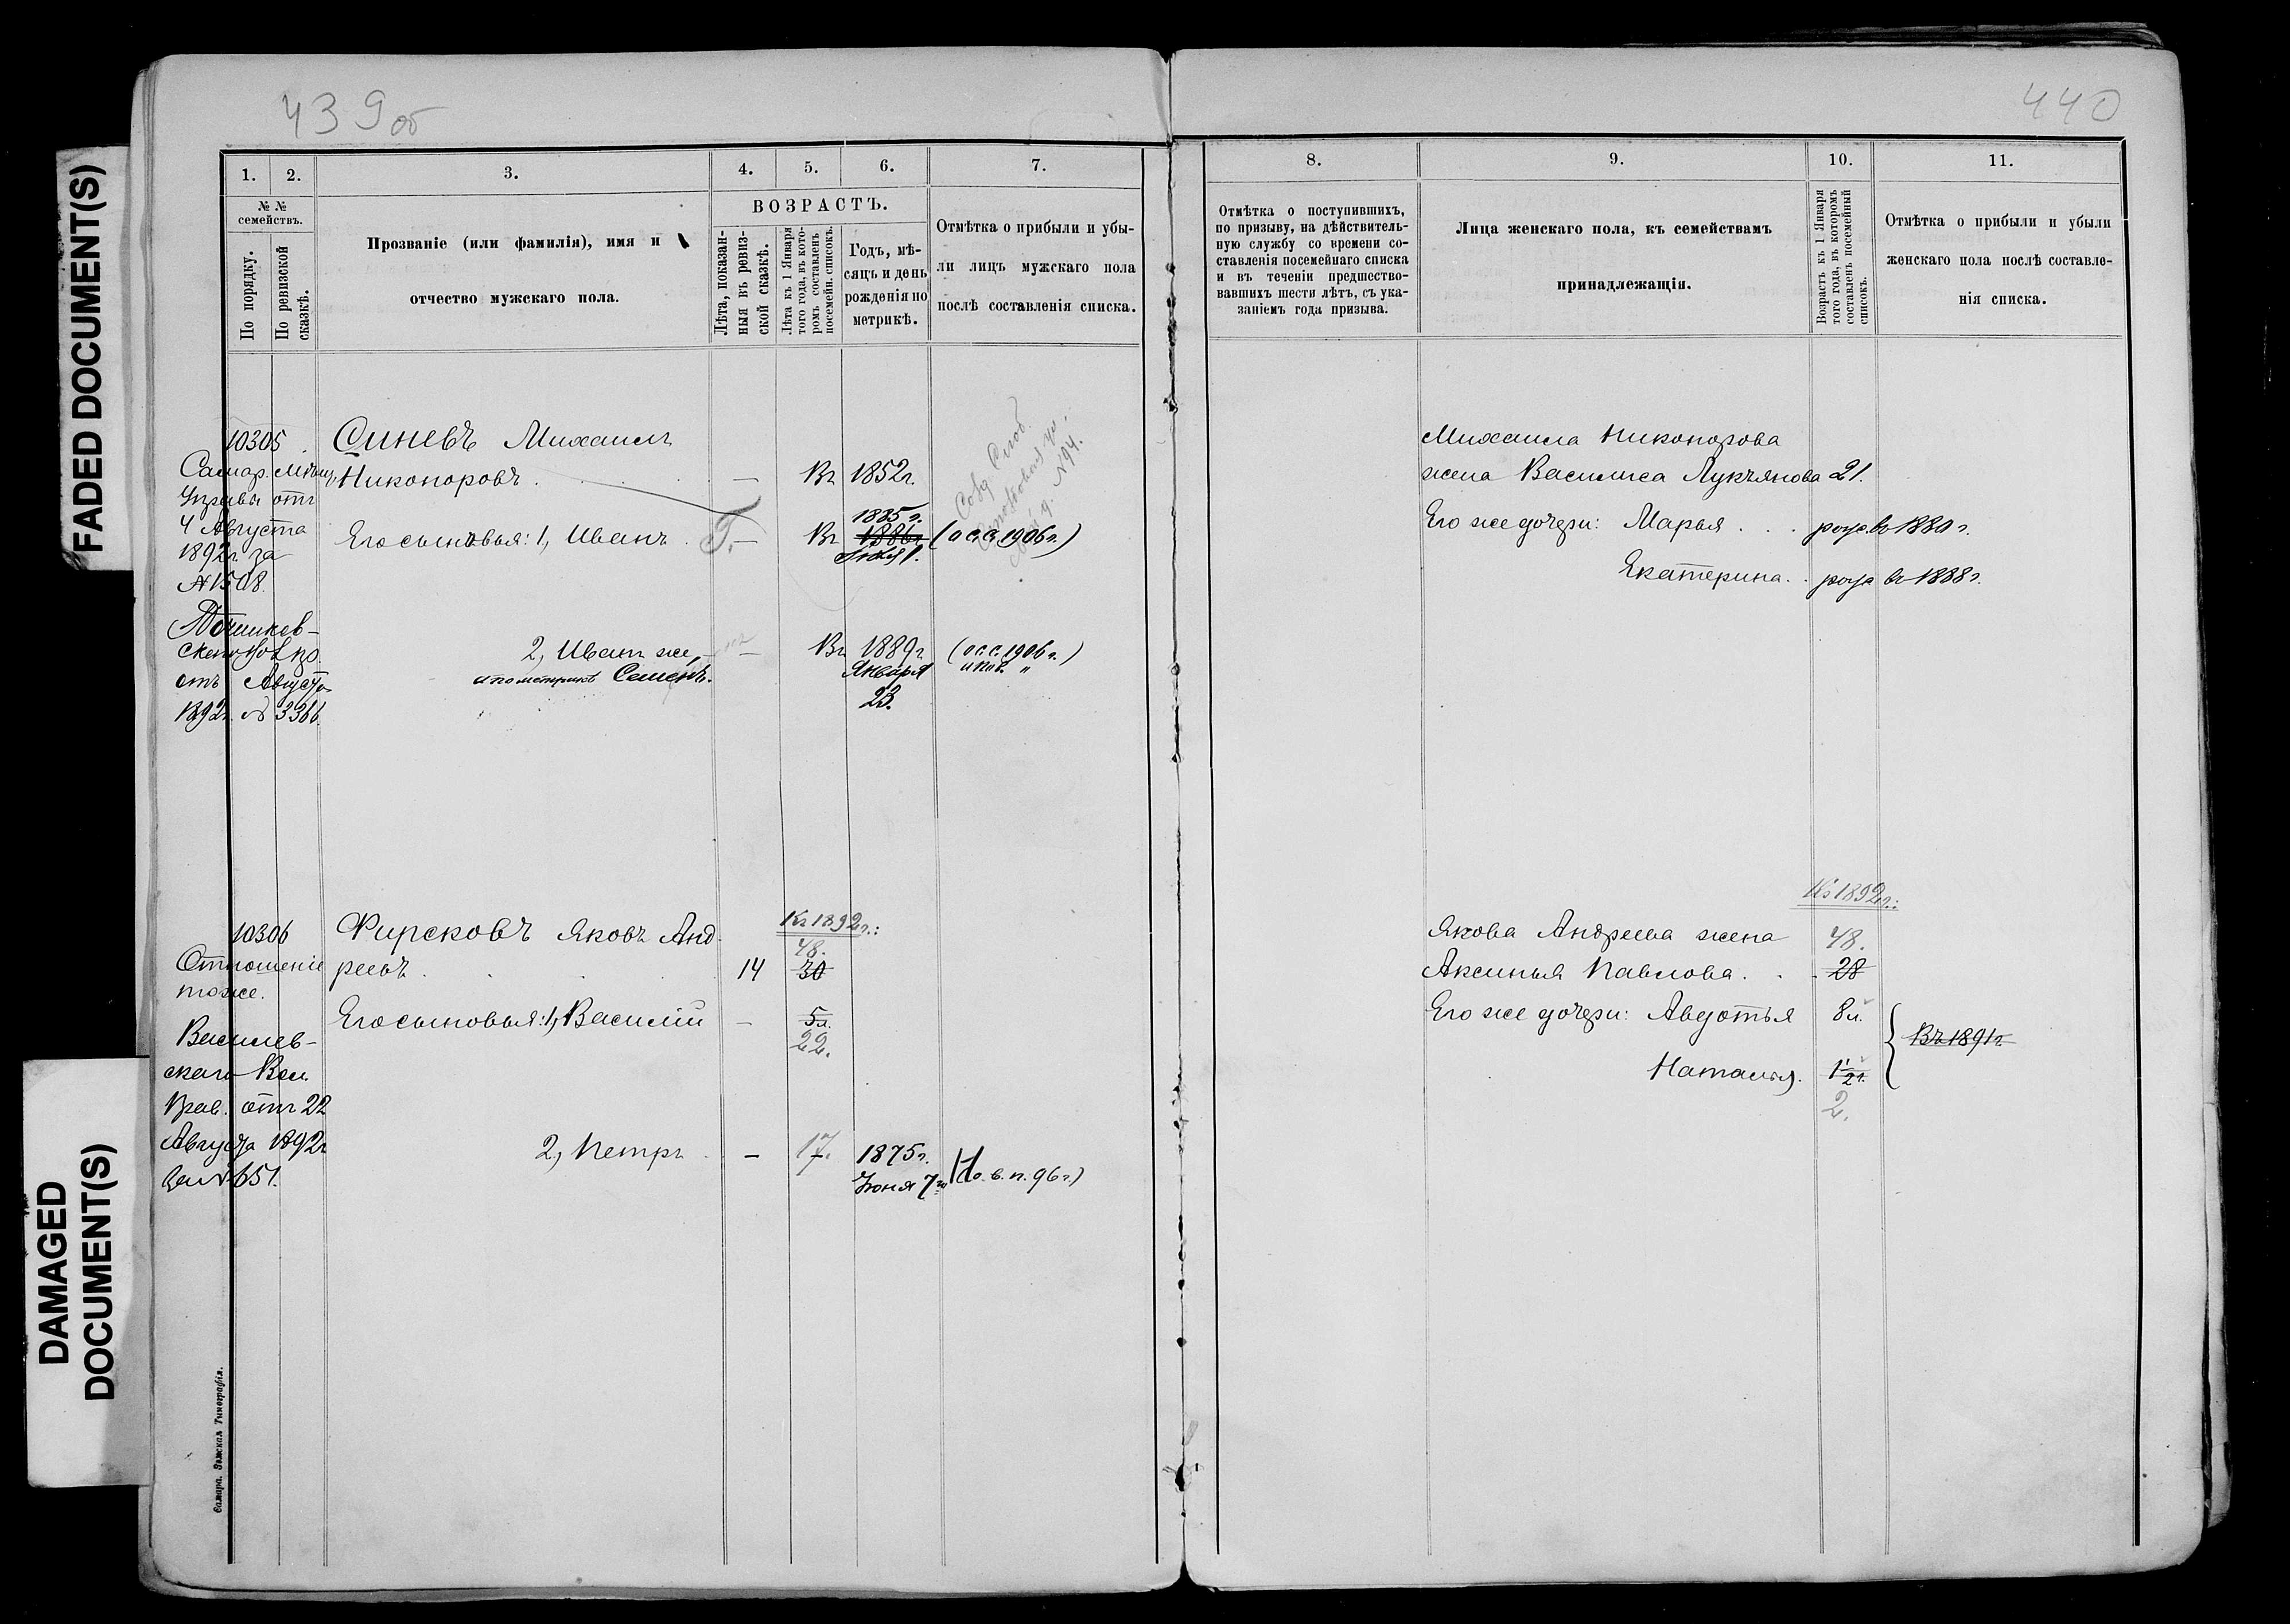 FADED DOCUMENT(S)
DAMAGED
DOCUMENT(S)
439об
1.
2.
3.
4.
5.
6.
7.
№ №
семействъ.
По порядку.
По ревизской
сказкѣ.
Прозваніе (или фамилія), имя и
отчество мужскаго пола.
ВОЗРАСТЪ.
Лѣта, показан-
ныя въ ревиз-
ской сказкѣ.
Лѣта къ 1 Января
того года, въ кото-
ромъ составленъ
посемейн. списокъ.
Годъ, мѣ-
сяцъ и день
рожденія по
метрикѣ.
Отмѣтка о прибыли и убы-
ли лицъ мужскаго пола
послѣ составленія списка.
10305
Самар. Мѣщ.
Управы отъ
4 Августа
1892г. за
№1508.
Синевъ Михаилъ
Никоноровъ . — Въ 1852г.
1885г.
Его сыновья: 1, Иванъ . — Въ 1886г. (о с.с. 1906г.)
№94.
отъ Августа
1892г. № 3366.
2, Иванъ же, — Въ 1889г. (о с.с. 1906г.)
и по метрикѣ Семенъ. Января
23.
10306
Отношеніе
тоже.
Василев-
скаго Вол.
Прав. отъ 22
Августа 1892г
за №651.
Къ 1892г.:
Фирсковъ Яковъ Анд-
48.
реевъ . 14 30
Его сыновья: 1, Василій — 5л.
22.
2, Петръ . — 17. 1875г.
Іюня 7го (о. в. п. 96г.)
Самара. Земская Типографія.
440
8.
9.
10.
11.
Отмѣтка о поступившихъ,
по призыву, на дѣйствитель-
ную службу со времени со-
ставленія посемейнаго списка
и въ теченіи предшество-
вавшихъ шести лѣтъ, съ ука-
заніемъ года призыва.
Лица женскаго пола, къ семействамъ
принадлежащія.
Возрастъ къ 1 Января
того года, въ которомъ
составленъ посемейный
списокъ.
Отмѣтка о прибыли и убыли
женскаго пола послѣ составле-
нія списка.
Михаила Никонорова
жена Василиса Лукъянова 21.
Его же дочери: Марья . . род. въ 1880г.
Екатерина. . род въ 1888г.
Къ 1892г.:
Якова Андреева жена 48.
Аксинья Павлова. . . 28
Его же дочери: Авдотья 8л.
Въ 1891г.
Наталья. 1 1/2 г.
2.